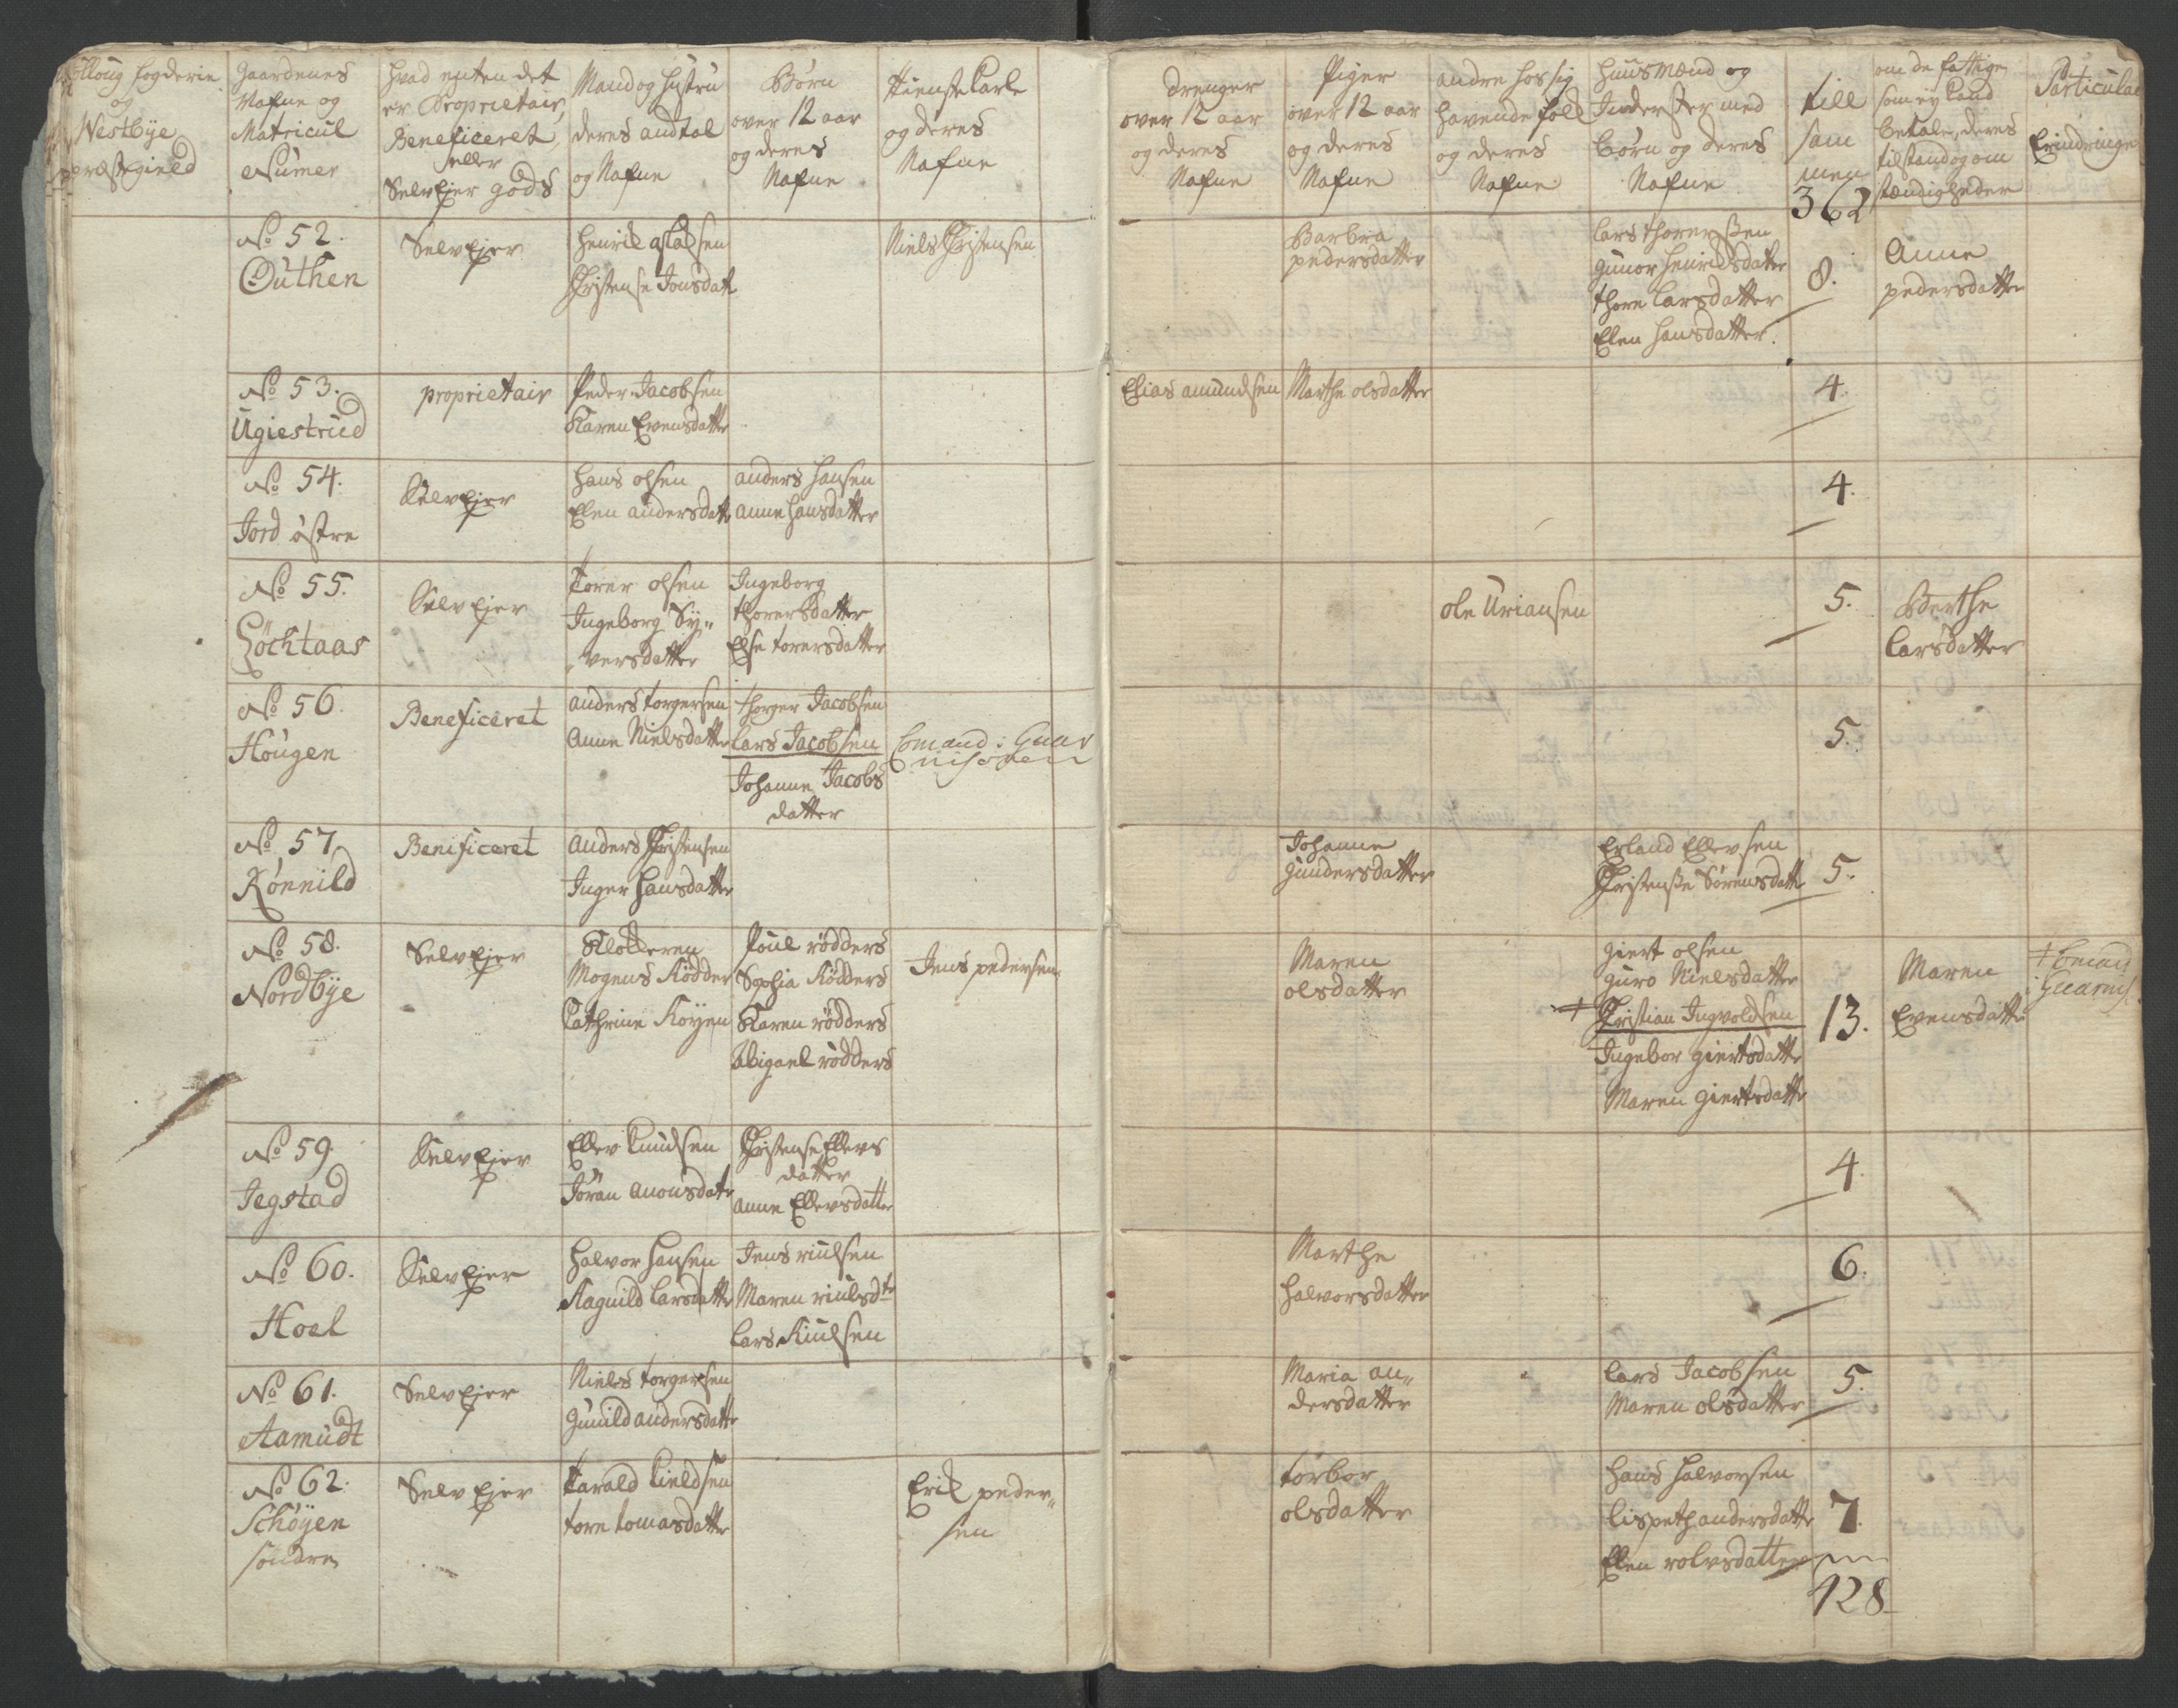 Folloug fogderie
og
Nestbÿe
præstegield
Gaardenes
Nafne og
Matricul
Numer
hvad enten det
er Proprietair,
Beneficeret
eller
SelvEjer gods
Mand og hustru
deres andtal
og Nafne
Børn
over 12 aar
og deres
Nafne
Tieniste Karle
og deres
Nafne
drenger
over 12 aar
og deres
Nafne
Piger
over 12 aar
og deres
Nafne
andre hos sig
havende folk
og deres
Nafne
huusmænd og
Inderster med
børn og deres
Nafne
till
sam
men
362
om de fattige
som ej kand
betale, deres
tilstand og om
stændigheder
Particulair
Erindringer
No 52.
Outhen
SelvEjer
henrik aslaksen
Christense Jonsdatt
Niels Christensen
Barbra
pedersdatter
Lars thorerssen
Gunor henricsdatter
thore Larsdatter
Elen hansdatter.
8.
Anne
pedersdatter
No 53.
Ugiestrud
proprietair
Peder Jacobsen
Karen Evensdatter
Elias amundsen
Marthe olsdatter
4.
No 54.
Jord østre
SelvEjer
hans olsen
Elen andersdatt
anders hansen
anne hansdatter
4.
No 55.
Göchtaas
SelvEjer
Torer olsen
Ingeborg Sÿ„
versdatter
Ingeborg
thorersdatter
Else torersdatter
ole Uriansen
5.
Berthe
Larsdatter
No 56.
Hougen
Beneficeret
anders torgersen
Anne Nielsdatter
thorger Jacobsen
Lars Jacobsen
Johanne Jacobs
datter
Comand: Guar
nisonen
5.
No 57.
Rønnild
Benificeret
Anders Christensen
Inger hansdatter
Johanne
Gundersdatter
Erland Ellevsen
Christense Sörensdatt
5.
No 58.
Nordbÿe
SelvEjer
Klokkeren
Mogens Rödder
Cathrine Röyen
Poul rödders
Sophia Rödders
Karen rödders
Abigael rödders
Jens pedersen
Maren
olsdatter
giert olsen
guro Nielsdatter
+ Christian Ingvoldsen
Ingebor giertsdatter
Maren giertsdatter
13.
Maren
Evensdatter
+ Coman
i Guarnis
No 59.
Jegstad
SelvEjer
Ellev Knudsen
Jöran anonsdatr
Christense Ellevs
datter
Anne Ellevsdatter
4.
No 60.
Hoel
SelvEjer
halvor hansen
Ragnild Larsdatter
Jens riulsen
Maren riulsdtr
Lars Riulsen
Marthe
halvorsdatter
6.
No 61.
Aamudt
SelvEjer
Niels torgersen
Gunild andersdatter
Maria an„
dersdatter
Lars Jacobsen
Maren olsdatter
5.
No 62.
Schöyen
söndre
SelvEjer
Tarald Kieldsen
tore tomasdatter
Erik peder„
sen
torbor
olsdatter
hans halvorsen
lispeth andersdatter
Elen rolvsdatter
7.
428